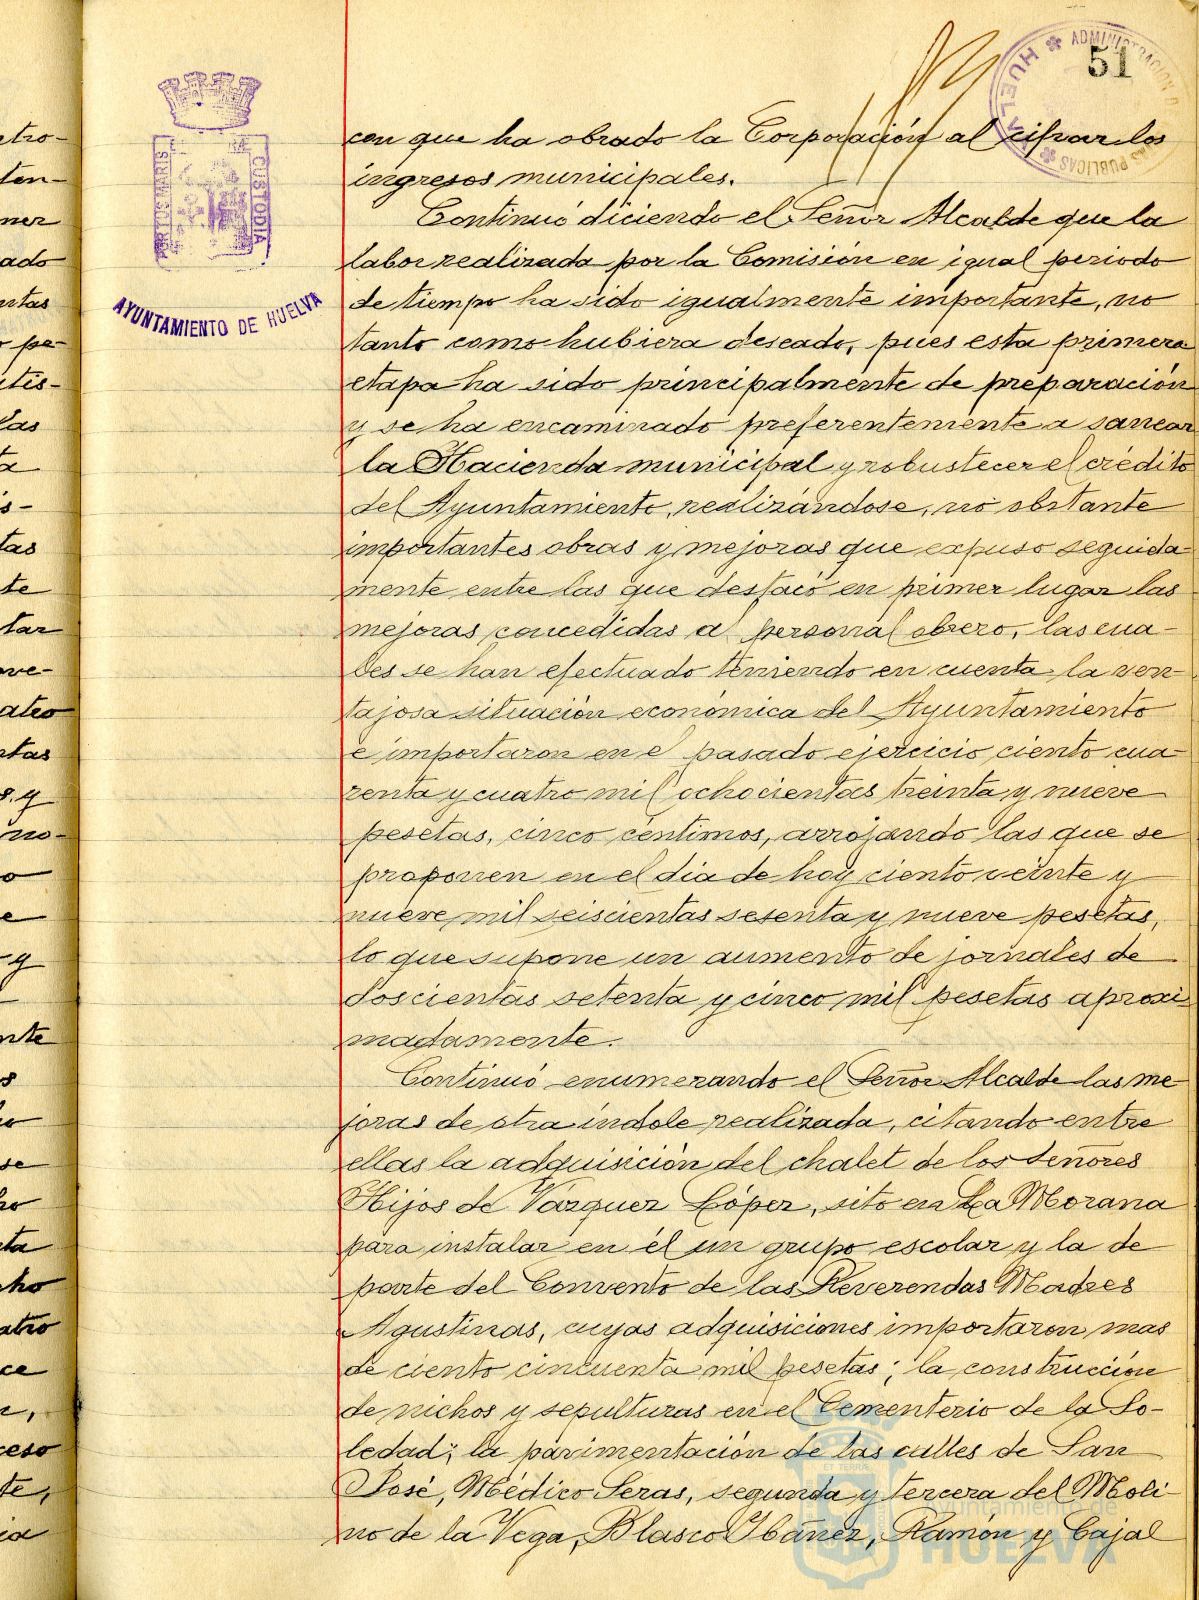 51
ADMINISTRACION D
HUELVA
PUBLICAS
PORTUS MARIS
CUSTODIA
AYUNTAMIENTO DE HUELVA
con que ha obrado la Corporación al cifrar los
ingresos municipales.
Continuó diciendo el Señor Alcalde que la
labor realizada por la Comisión en igual periodo
de tiempo ha sido igualmente importante, no
tanto como hubiera deseado, pues esta primera
etapa ha sido principalmente de preparación
y se ha encaminado preferentemente a sanear
la Hacienda municipal y robustecer el crédito
del Ayuntamiento, realizándose, no obstante
importantes obras y mejoras que expuso seguida-
mente entre las que destacó en primer lugar las
mejoras concedidas al personal obrero, las cua-
les se han efectuado teniendo en cuenta la ven-
tajosa situación económica del Ayuntamiento
e importaron en el pasado ejercicio ciento cua-
renta y cuatro mil ochocientas treinta y nueve
pesetas, cinco céntimos, arrojando las que se
proponen en el dia de hoy ciento veinte y
nueve mil seiscientas sesenta y nueve pesetas,
lo que supone un aumento de jornales de
doscientas setenta y cinco mil pesetas aproxi-
madamente.
Continuó enumerando el Señor Alcalde las me-
joras de otra índole realizada, citando entre
ellas la adquisición del chalet de los Señores
Hijos de Vázquez López, sito en La Morana
para instalar en él un grupo escolar y la de
parte del Convento de las Reverendas Madres
Agustinas, cuyas adquisiciones importaron mas
de ciento cincuenta mil pesetas; la construcción
de nichos y sepulturas en el Cementerio de la So-
ledad; la pavimentación de las calles de San
José, Médico Seras, segunda y tercera del Moli-
no de la Vega, Blasco Ibáñez, Ramón y Cajal
Ayuntamiento de
HUELVA